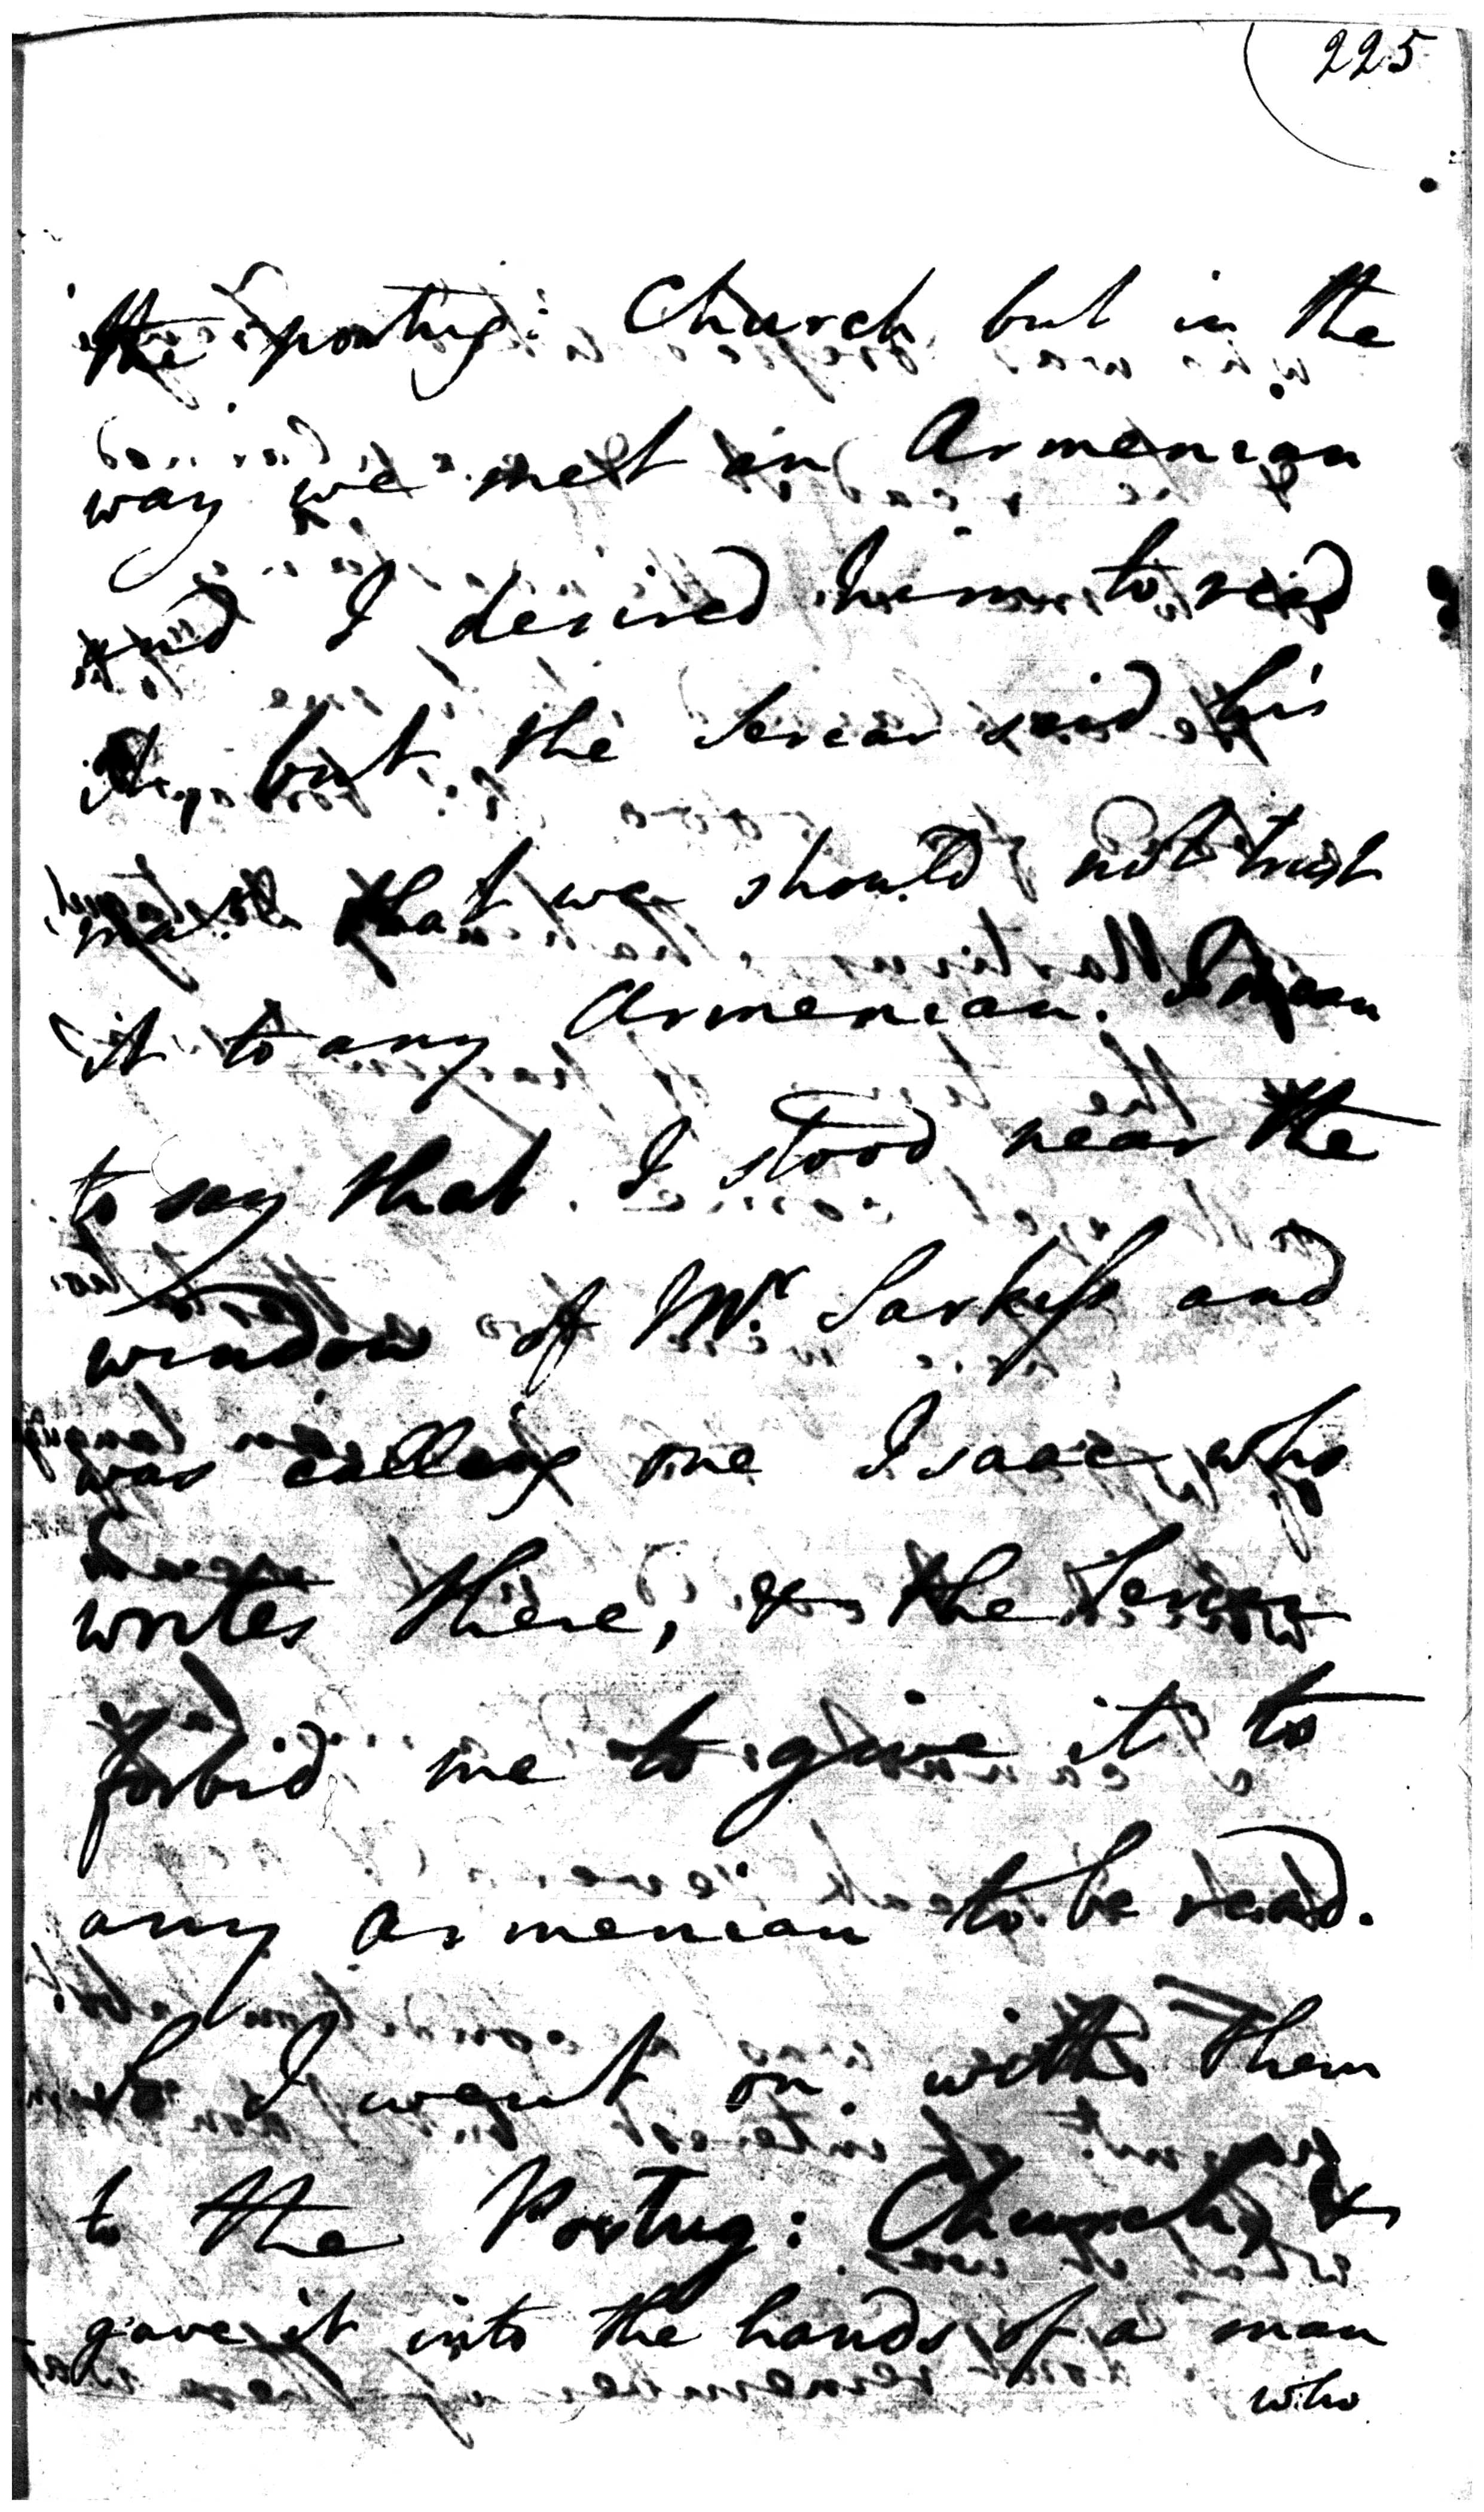 225
the portug: Church but in the
way we met an Armenian
and I desired him to read
it, but the Sercar said his
that we should not trust
it to any Armenian. I mean
to say that. I stood near the
window of Mr. Sarkiss and
was calling one Isaac who
writes there, & the Sercar
forbid me to give it to
any Armenian to be read.
So I went on with them
to the Portug: Church &
gave it into the hands of a man
who